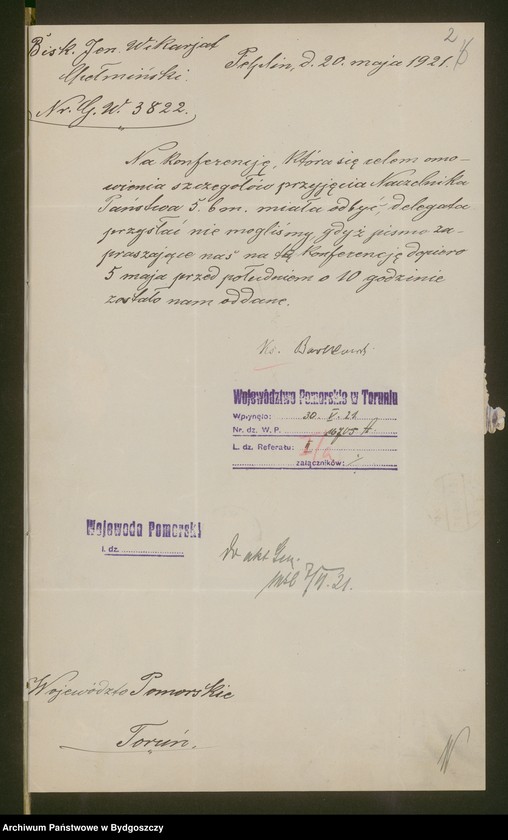 2
Bisk. Jen. Wikarjat
Chełmiński.
Pelplin, d. 20. maja 1921.
Nr. G. W. 3822.
Na konferencję, która się celem omo-
wienia szczegółów przyjęcia Naczelnika
Państwa 5. bm. miała odbyć, delegata
przysłać nie mogliśmy, gdyż pismo za-
praszające nas na tę konferencję dopiero
5 maja przed południem o 10 godzinie
zostało nam oddane.
Ks.
Województwo Pomorskie w Toruniu
Wpłynęło: 30. V. 21
Nr. dz. W. P.
L. dz. Referatu:
załączników: /
Wojewoda Pomorski
l. dz.
do akt
7/VI. 21.
Województo Pomorskie
Toruń.
Archiwum Państwowe w Bydgoszczy